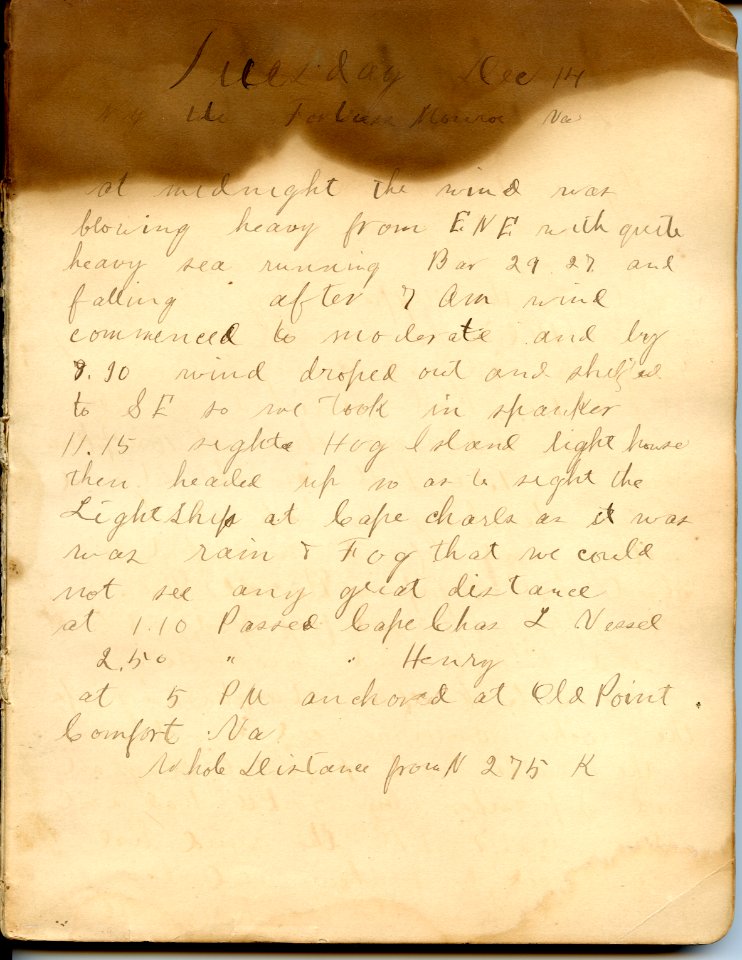 Tuesday Dec 14
N.Y. to Fortress Monroe Va
at midnight the wind was
blowing heavy from ENE with quite
heavy sea running Bar 29 27 and
falling after 7 Am wind
commenced to moderate and by
9.30 wind droped out and shifted
to SE so we took in spanker
11.15 sighte Hog Island light house
then headed up so as to sight the
Light Ship at Cape charls as it was
was rain & Fog that we could
not see any great distance
at 1.10 Passed Cape Chas L Vessel
2.50 " " Henry
at 5 PM anchored at Old Point
Comfort Va
Whole Distance from N 275 K